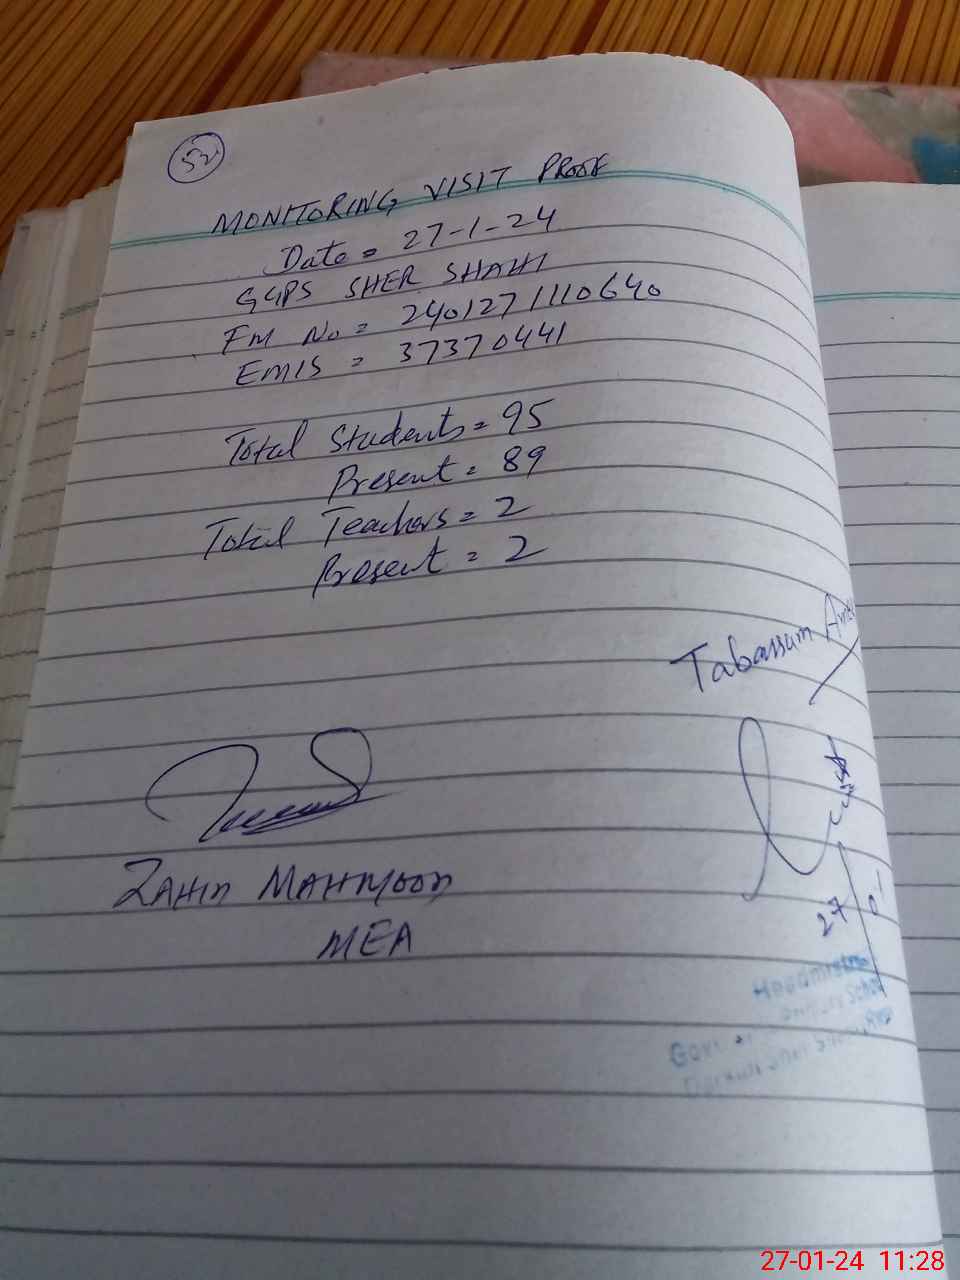 52
MONITORING VISIT PROOF
Date = 27-1-24
GGPS SHER SHAHI
FM No = 2401271110640
EMIS = 37370441
Total Students = 95
Present = 89
Total Teachers = 2
Present = 2
Tabassum
27
ZAHID MAHMOOD
MEA
Headmistre
Govt
27-01-24 11:28